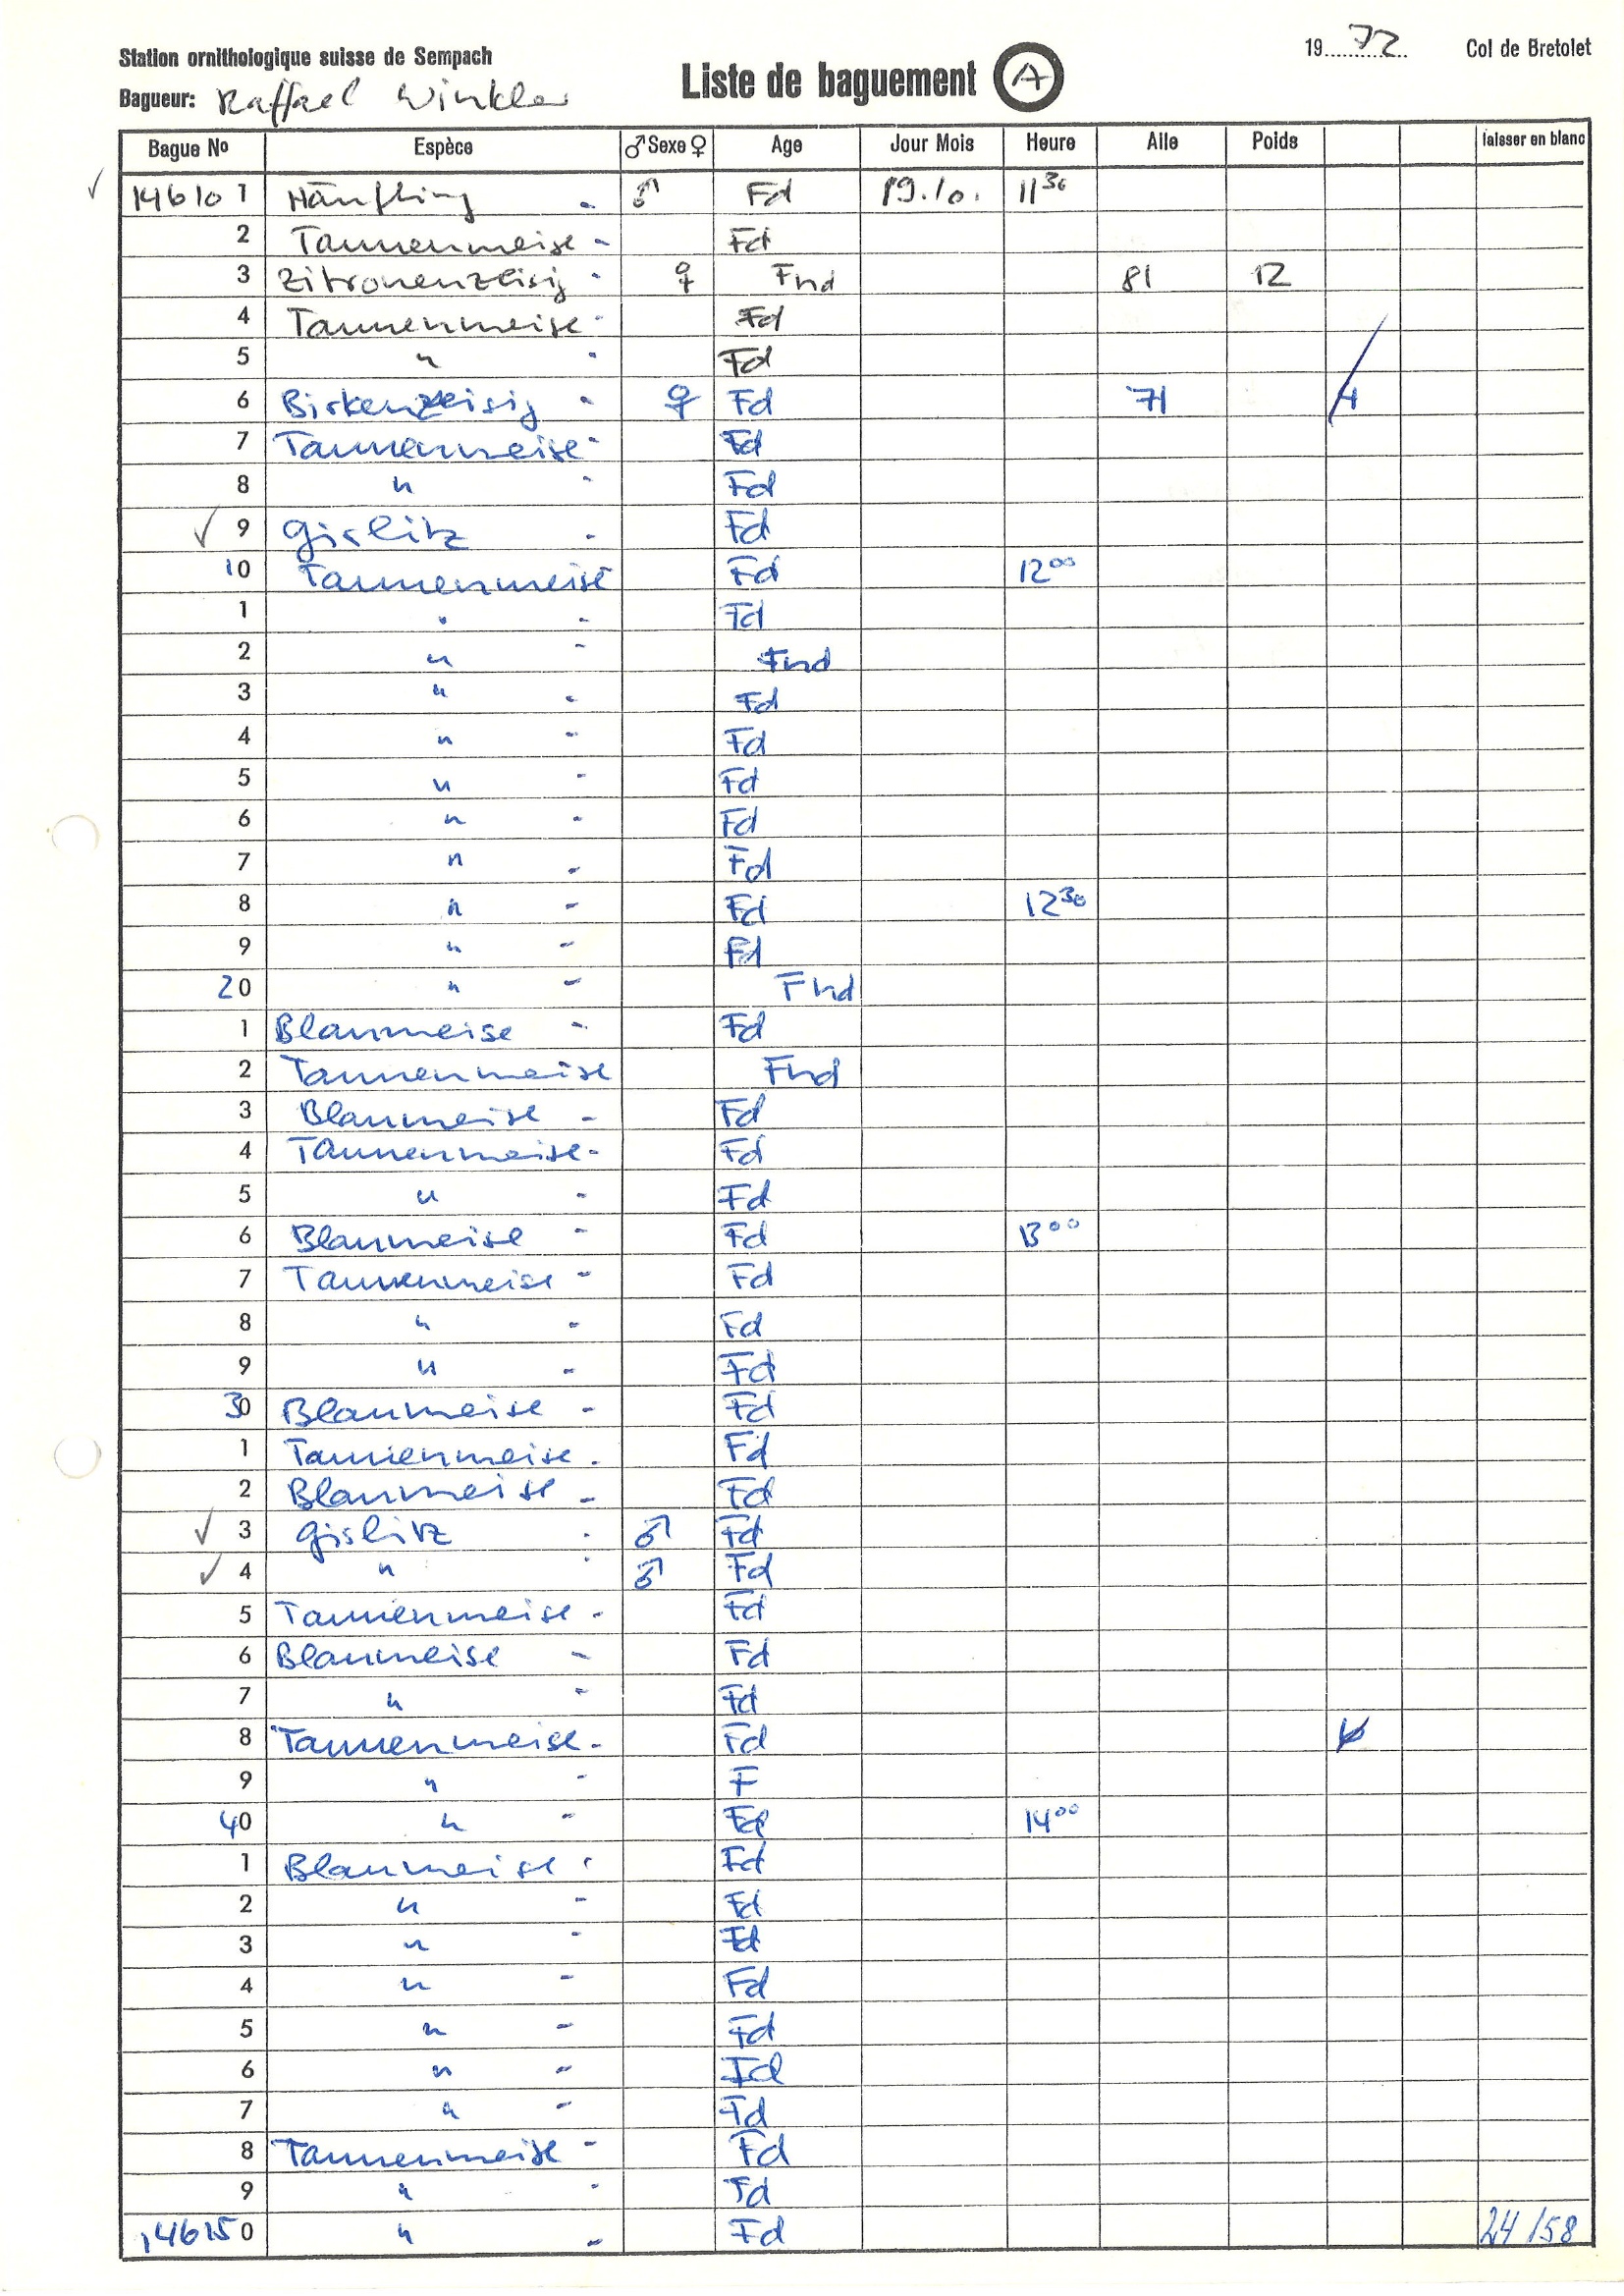 Station ornithologique suisse de Sempach
19 72 Col de Bretolet
Liste de baguement A
Bagueur: Raffael Winkler
Bague No Espèce ♂ Sexe ♀ Age Jour Mois Heure Aile Poids laisser en blanc
✓ 146101 Hänfling - ♂ Fd 19.10. 11 30
2 Tannenmeise - Fd
3 Zitronenzeisig - ♀ Fnd 81 12
4 Tannenmeise - Fd
5 " - Fd
6 Birkenzeisig - ♀ Fd 71
7 Tannenmeise - Fd
8 " - Fd
✓ 9 Girlitz - Fd
10 Tannenmeise Fd 12 00
1 " - Fd
2 " - Fnd
3 " - Fd
4 " - Fd
5 " - Fd
6 " - Fd
7 " - Fd
8 " - Fd 12 30
9 " - Fd
20 " - Fnd
1 Blaumeise - Fd
2 Tannenmeise Fnd
3 Blaumeise - Fd
4 Tannenmeise - Fd
5 " - Fd
6 Blaumeise - Fd 13 00
7 Tannenmeise - Fd
8 " - Fd
9 " - Fd
30 Blaumeise - Fd
1 Tannenmeise - Fd
2 Blaumeise - Fd
✓ 3 Girlitz - ♂ Fd
✓ 4 " - ♂ Fd
5 Tannenmeise - Fd
6 Blaumeise - Fd
7 " - Fd
8 Tannenmeise - Fd
9 " - F
40 " - Fd 14 00
1 Blaumeise - Fd
2 " - Fd
3 " - Fd
4 " - Fd
5 " - Fd
6 " - Fd
7 " - Fd
8 Tannenmeise - Fd
9 " - Fd
146150 " - Fd 24/58